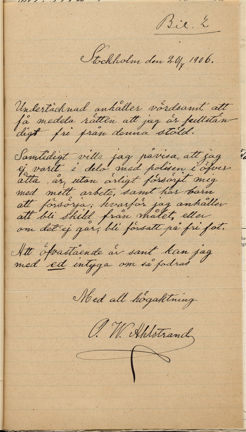 Bil. 2
Stockholm den 20/9 1906.
Undertecknad anhåller vördsamt att
få meddela rätten att jag är fullstän
digt fri från denna stöld.
Samtidigt ville jag påvisa, att jag
ej varit i delo med polisen i öfver
åtta år, utan ärligt försörjt mig
med mitt arbete, samt har barn
att försörja; hvarför jag anhåller
att bli skild från målet, eller
om det ej går, bli försatt på fri fot.
Att ofvastående är sant kan jag
med ed intyga om så fodras
Med all högaktning
A. W. Ahlstrand